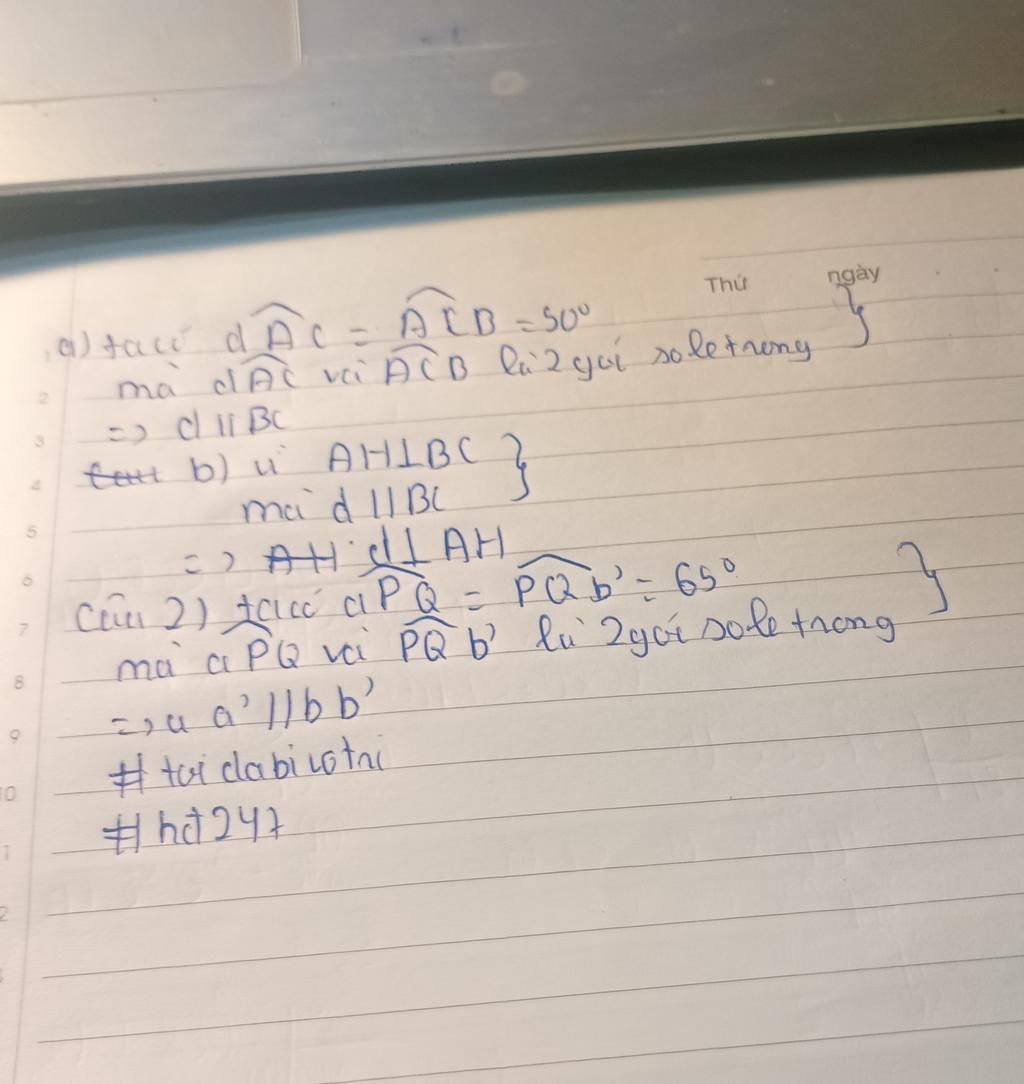 Thứ ngày
a) ta có dÂC = AĈB = 50°
mà dÂC và AĈB là 2 góc so le trong }
=> d // BC
b) vì AH⊥BC }
mà d // BC
=> d⊥AH
Câu 2) ta có aP̂Q = PQ̂b' = 65° }
mà aP̂Q và PQ̂b' là 2 góc so le trong
=> aa' // bb'
# toi dabi votri
# hđ247
2
3
4
5
6
7
8
9
10
1
2